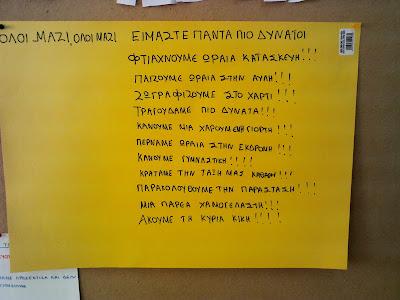 ΟΛΟΙ ΜΑΖΙ, ΟΛΟΙ ΜΑΖΙ ΕΙΜΑΣΤΕ ΠΑΝΤΑ ΠΙΟ ΔΥΝΑΤΟΙ
ΦΤΙΑΧΝΟΥΜΕ ΩΡΑΙΑ ΚΑΤΑΣΚΕΥΗ!!!
ΠΑΙΖΟΥΜΕ ΩΡΑΙΑ ΣΤΗΝ ΑΥΛΗ!!!
ΖΩΓΡΑΦΙΖΟΥΜΕ ΣΤΟ ΧΑΡΤΙ!!!
ΤΡΑΓΟΥΔΑΜΕ ΠΙΟ ΔΥΝΑΤΑ!!!
ΚΑΝΟΥΜΕ ΜΙΑ ΧΑΡΟΥΜΕΝΗ ΓΙΟΡΤΗ!!!
ΠΕΡΝΑΜΕ ΩΡΑΙΑ ΣΤΗΝ ΕΚΔΡΟΜΗ!!!
ΚΑΝΟΥΜΕ ΓΥΜΝΑΣΤΙΚΗ!!!!
ΚΡΑΤΑΜΕ ΤΗΝ ΤΑΞΗ ΜΑΣ ΚΑΘΑΡΗ!!!
ΠΑΡΑΚΟΛΟΥΘΟΥΜΕ ΤΗΝ ΠΑΡΑΣΤΑΣΗ!!!
ΜΙΑ ΠΑΡΕΑ ΧΑΜΟΓΕΛΑΣΤΗ!!!
ΑΚΟΥΜΕ ΤΗ ΚΥΡΙΑ ΚΙΚΗ!!!!